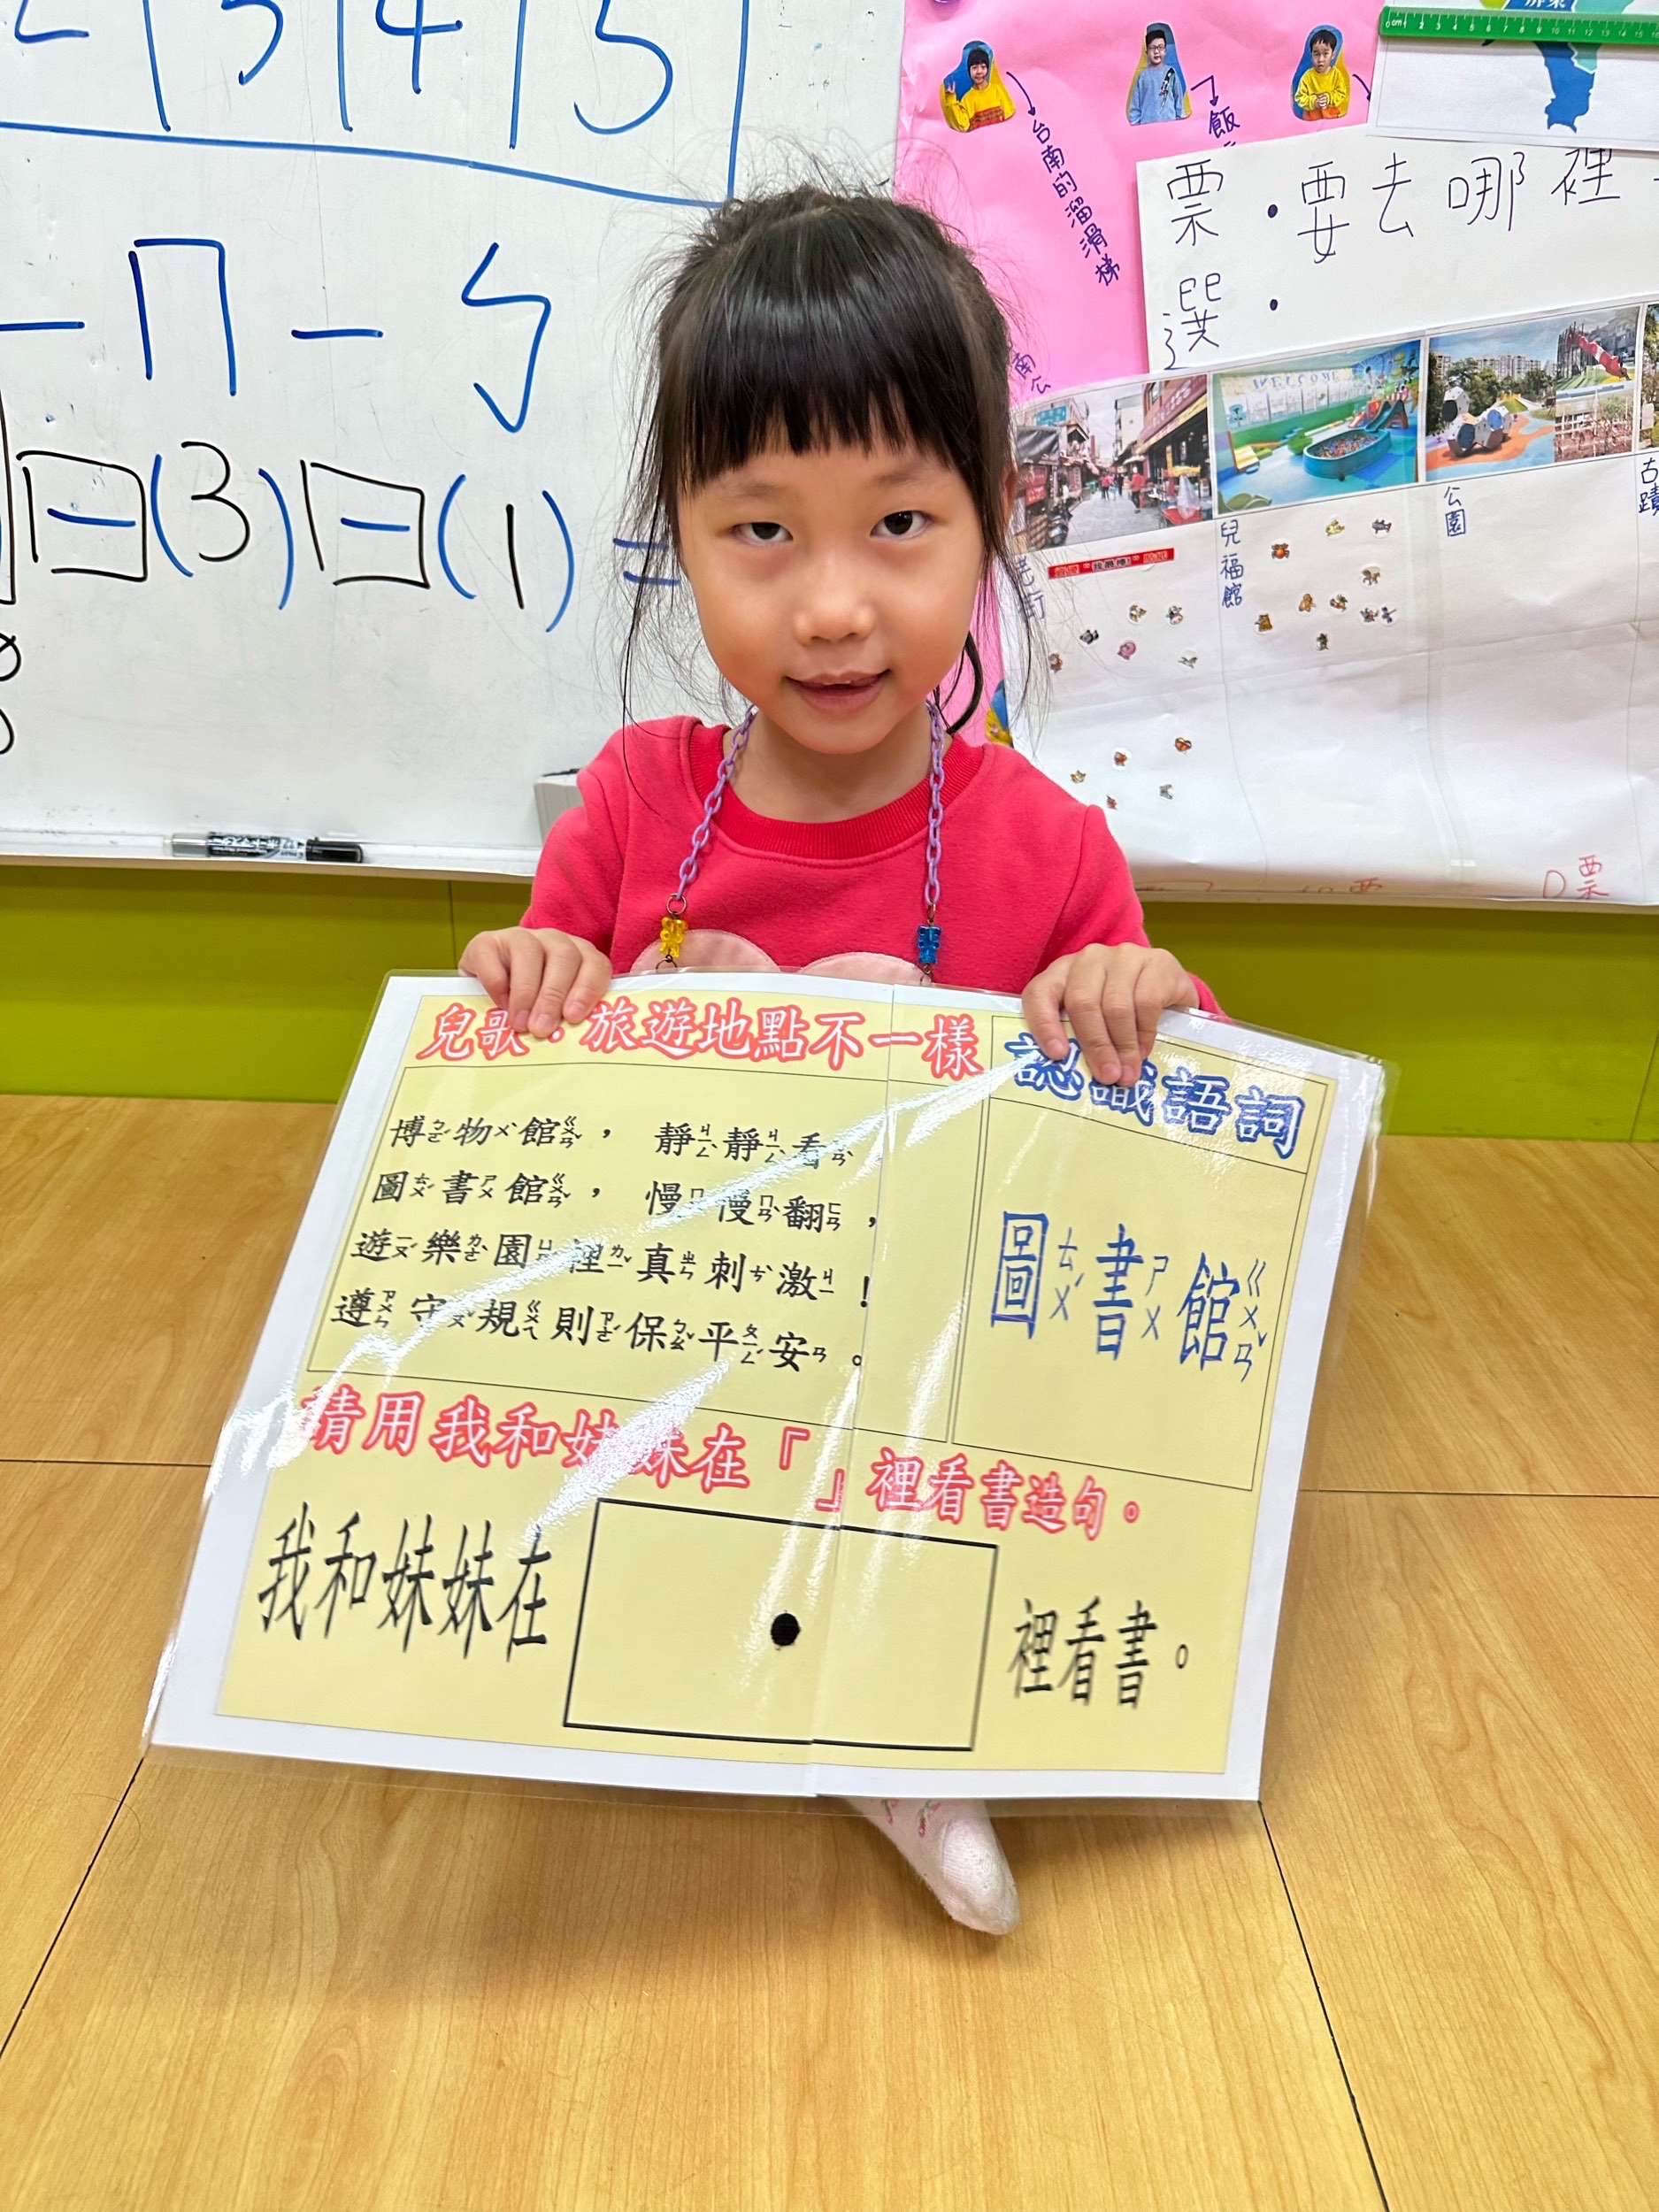 3 4 5
ㄇ ㄣ
(3) (1) =
台南的溜滑梯
飯
票・要去哪裡
選・
WELCOME
老街
兒福館
公園
古蹟
0票
兒歌:旅遊地點不一樣
博ㄅㄛˊ物ㄨˋ館ㄍㄨㄢˇ, 靜ㄐㄧㄥˋ靜ㄐㄧㄥˋ看ㄎㄢˋ,
圖ㄊㄨˊ書ㄕㄨ館ㄍㄨㄢˇ, 慢ㄇㄢˋ慢ㄇㄢˋ翻ㄈㄢ,
遊ㄧㄡˊ樂ㄌㄜˋ園ㄩㄢˊ裡ㄌㄧˇ真ㄓㄣ刺ㄘˋ激ㄐㄧ!
遵ㄗㄨㄣ守ㄕㄡˇ規ㄍㄨㄟ則ㄗㄜˊ保ㄅㄠˇ平ㄆㄧㄥˊ安ㄢ。
認識語詞
圖ㄊㄨˊ書ㄕㄨ館ㄍㄨㄢˇ
請用我和妹妹在「 」裡看書造句。
我和妹妹在 裡看書。